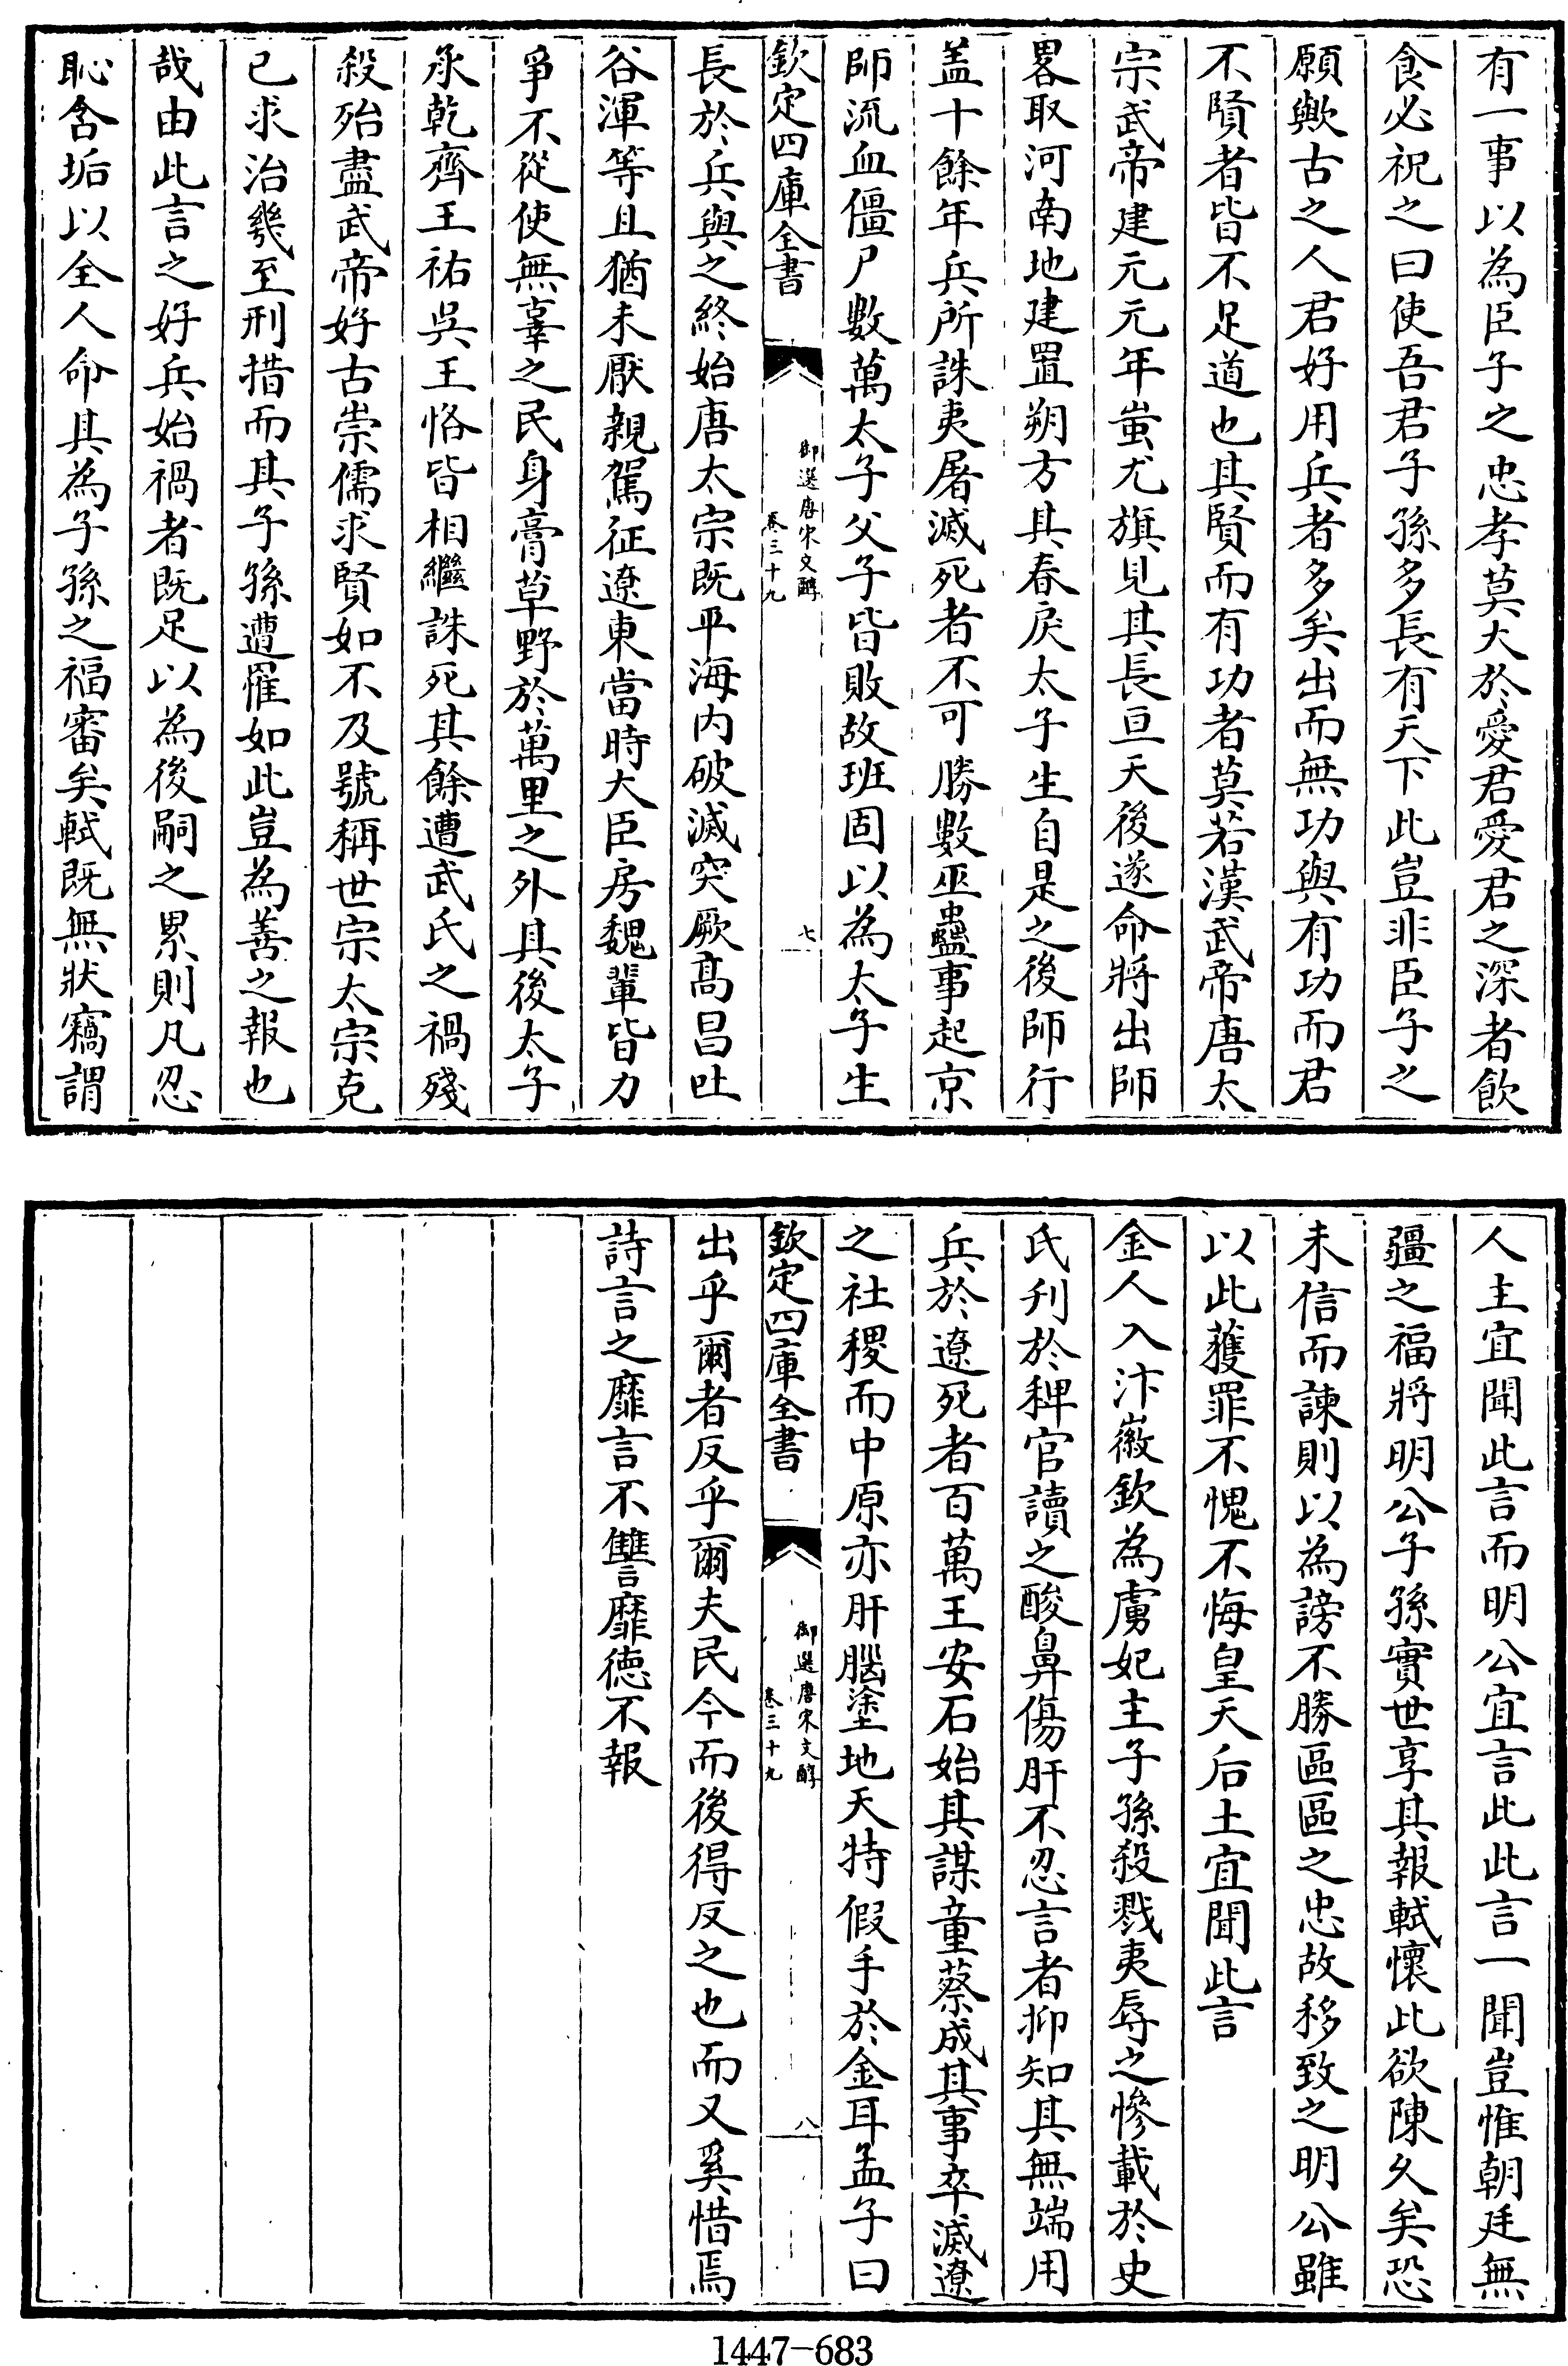 有一事以為臣子之忠孝莫大於愛君愛君之深者飲
食必祝之曰使吾君子孫多長有天下此豈非臣子之
願歟古之人君好用兵者多矣出而無功與有功而君
不賢者皆不足道也其賢而有功者莫若漢武帝唐太
宗武帝建元元年蚩尤旗見其長亘天後遂命將出師
畧取河南地建置朔方其春戾太子生自是之後師行
盖十餘年兵所誅夷屠滅死者不可勝數巫蠱事起京
師流血僵尸數萬太子父子皆敗故班固以為太子生
欽定四庫全書
御選唐宋文醇
卷三十九
七
長於兵與之終始唐太宗既平海内破滅突厥高昌吐
谷渾等且猶未厭親駕征遼東當時大臣房魏輩皆力
爭不從使無辜之民身膏草野於萬里之外其後太子
承乾齊王祐吳王恪皆相繼誅死其餘遭武氏之禍殘
殺殆盡武帝好古崇儒求賢如不及號稱世宗太宗克
己求治幾至刑措而其子孫遭罹如此豈為善之報也
哉由此言之好兵始禍者既足以為後嗣之累則凡忍
恥含垢以全人命其為子孫之福審矣軾既無狀竊謂
人主宜聞此言而明公宜言此此言一聞豈惟朝廷無
疆之福將明公子孫實世享其報軾懷此欲陳久矣恐
未信而諫則以為謗不勝區區之忠故移致之明公雖
以此獲罪不愧不悔皇天后土宜聞此言
金人入汴徽欽為虜妃主子孫殺戮夷辱之慘載於史
氏刋於稗官讀之酸鼻傷肝不忍言者抑知其無端用
兵於遼死者百萬王安石始其謀童蔡成其事卒滅遼
之社稷而中原亦肝腦塗地天特假手於金耳孟子曰
欽定四庫全書
御選唐宋文醇
卷三十九
八
出乎爾者反乎爾夫民今而後得反之也而又奚惜焉
詩言之靡言不讐靡德不報
1447-683